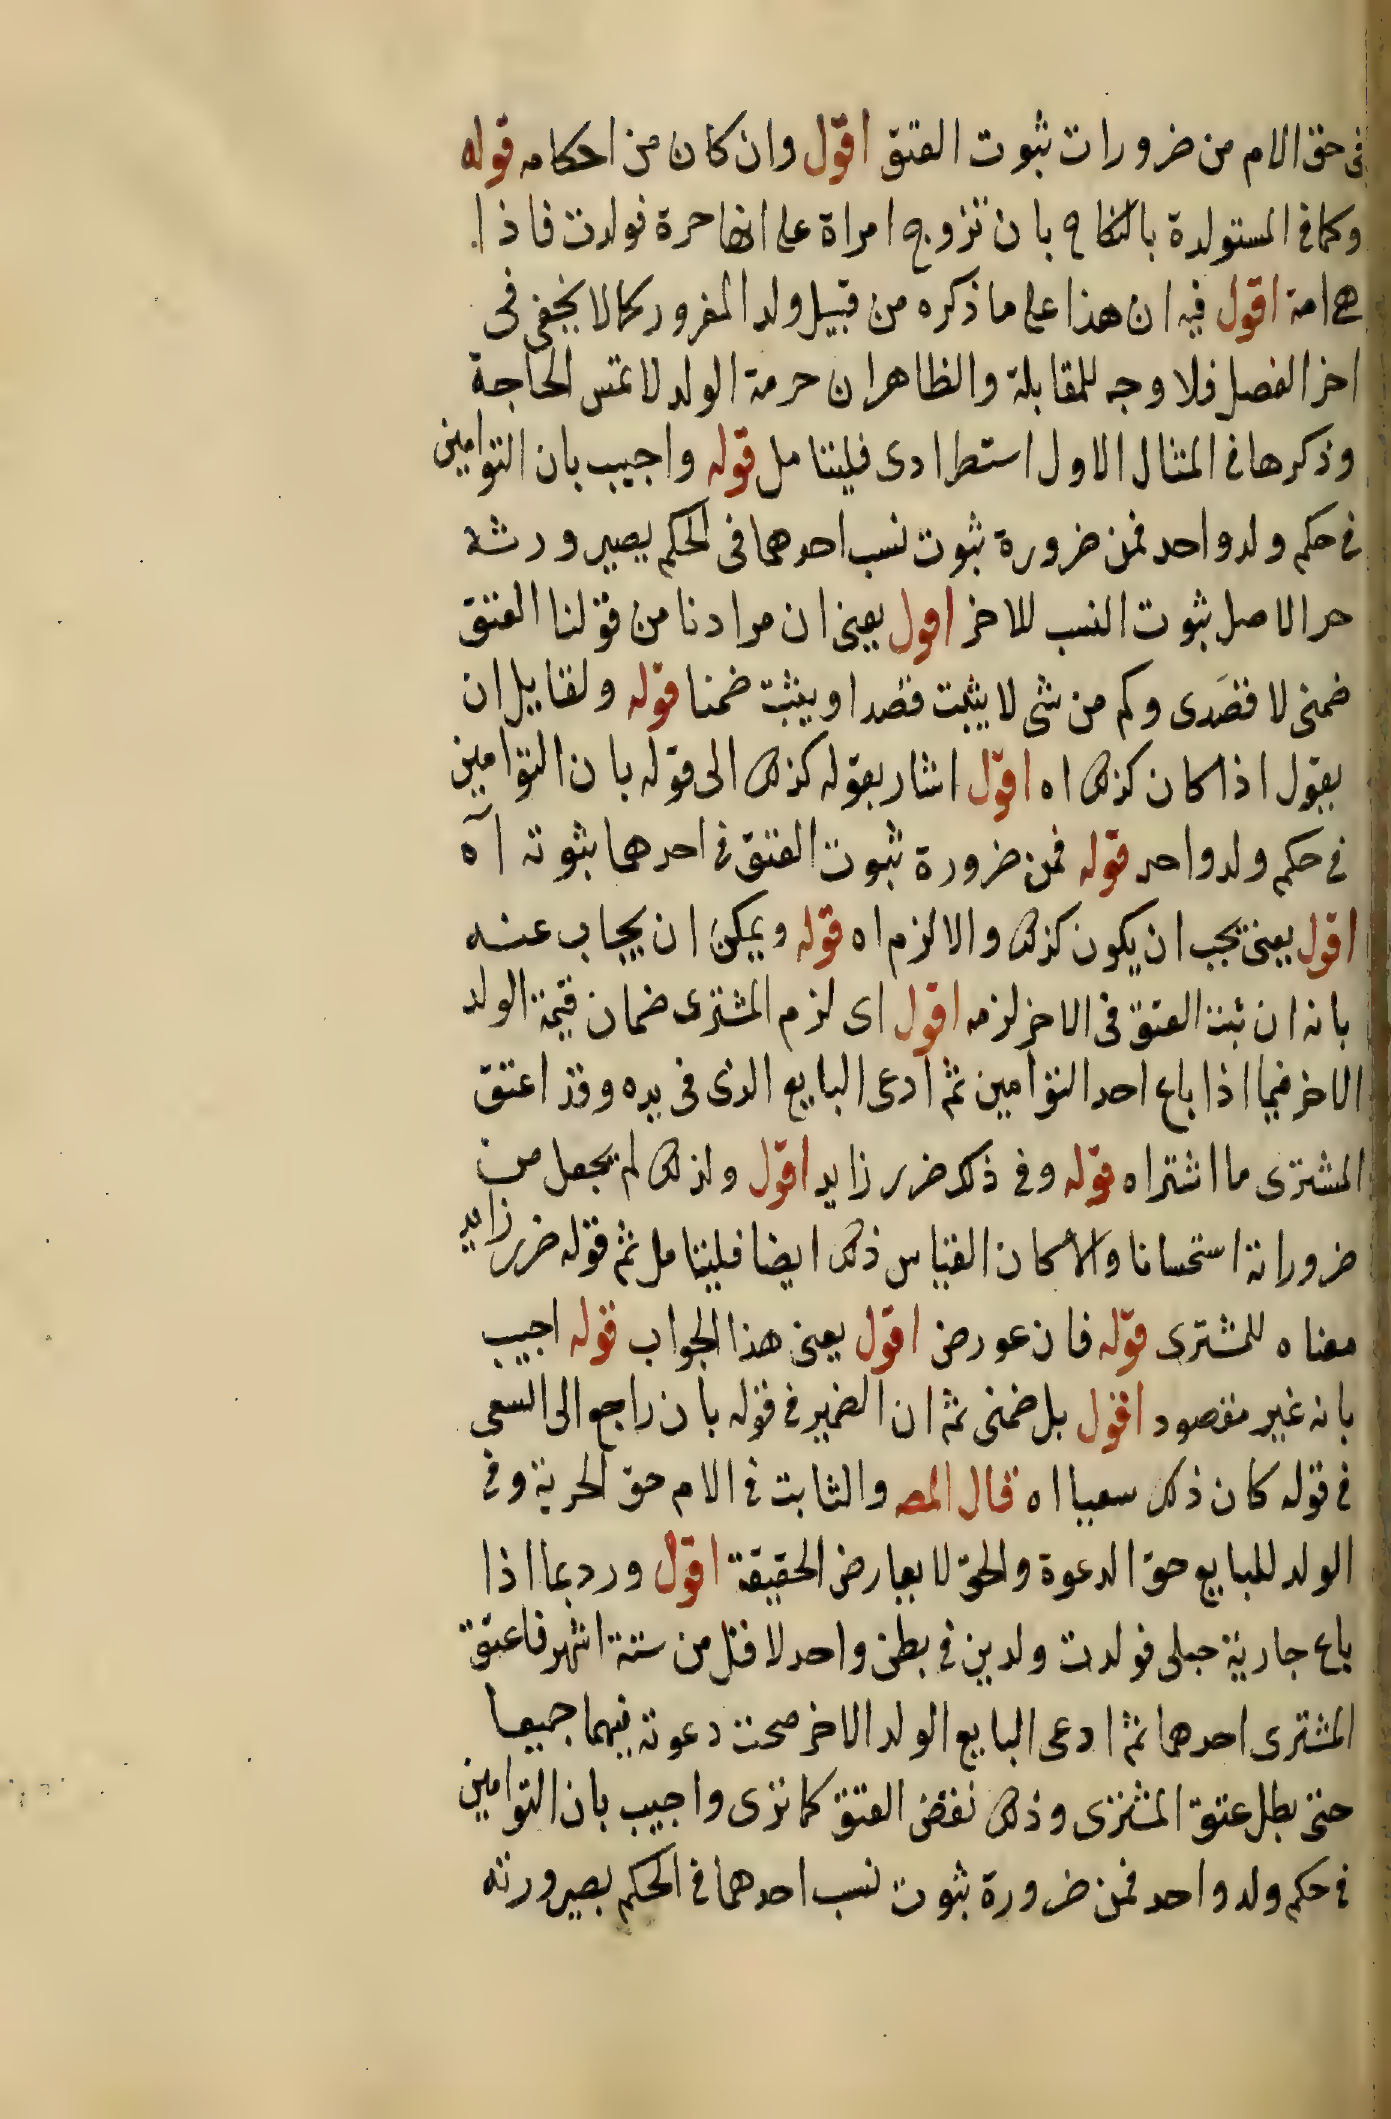 فى حق الام من ضرورات ثبوت العتق اقول وان كان من احكامه قوله
وكما فى المستولدة بالنكاح بان تزوج امراة على انها حرة فولدت فاذا
هى امة اقول فيه ان هذا على ما ذكره من قبيل ولد المغرور كما لا يخفى فى
اخر الفصل فلا وجه للمقابلة والظاهر ان حرمة الولد لا تمس الحاجة
وذكرها فى المثال الاول استطرادى فليتامل قوله واجيب بان التوامين
فى حكم ولد واحد فمن ضرورة ثبوت نسب احدهما فى الحكم بصيرورته
حر الاصل ثبوت النسب للاخر اقول يعنى ان مرادنا من قولنا العتق
ضمنى لا قصدى وكم من شى لا يثبت قصدا ويثبت ضمنا قوله ولقايل ان
يقول اذا كان كذلك اه اقول اشار بقوله كذلك الى قوله بان التوامين
فى حكم ولد واحد قوله فمن ضرورة ثبوت العتق فى احدهما ثبوته آه
اقول يعنى يجب ان يكون كذلك والا لزم اه قوله ويمكن ان يجاب عنه
بانه ان ثبت العتق فى الاخر لزمه اقول اى لزم المشترى ضمان قيمة الولد
الاخر فيما اذا باع احد التوامين ثم ادعى البايع الذى فى يده وقد اعتق
المشترى ما اشتراه قوله وفى ذلك ضرر زايد اقول ولذلك لم يجعل من
ضروراته استحسانا والا كان القياس ذلك ايضا فليتامل ثم قوله ضرر زايد
معناه للمشترى قوله فان عورض اقول يعنى هذا الجواب قوله اجيب
بانه غير مقصود اقول بل ضمنى ثم ان الضمير فى قوله بان راجع الى السعى
فى قوله كان ذلك سعيا اه قال المصه والثابت فى الام حق الحرية وفى
الولد للبايع حق الدعوة والحق لا يعارض الحقيقة اقول ورد بما اذا
باع جارية حبلى فولدت ولدين فى بطن واحد لاقل من ستة اشهر فاعتق
المشترى احدهما ثم ادعى البايع الولد الاخر صحت دعوته فيهما جميعا
حتى بطل عتق المشترى وذلك نقض العتق كما ترى واجيب بان التوامين
فى حكم ولد واحد فمن ضرورة ثبوت نسب احدهما فى الحكم بصيرورته